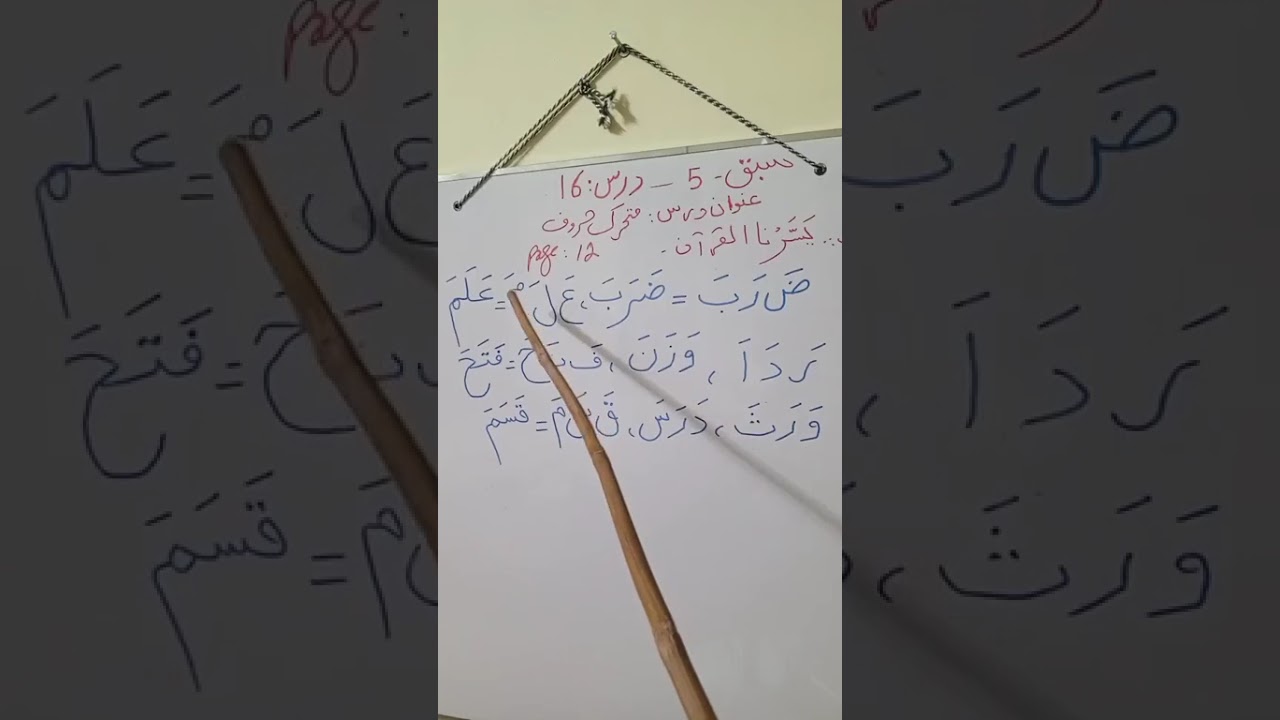 سبق - 5 - درس: 16
عنوان درس: متحرک حروف
یسّرنا القرآن - page: 12
ضَ رَ بَ = ضَرَبَ، عَ لَ مَ = عَلَمَ
بَ رَ دَ اَ، وَ زَ نَ، فَ تَ حَ = فَتَحَ
وَ رَ ثَ، دَ رَ سَ، قَ سَ مَ = قَسَمَ